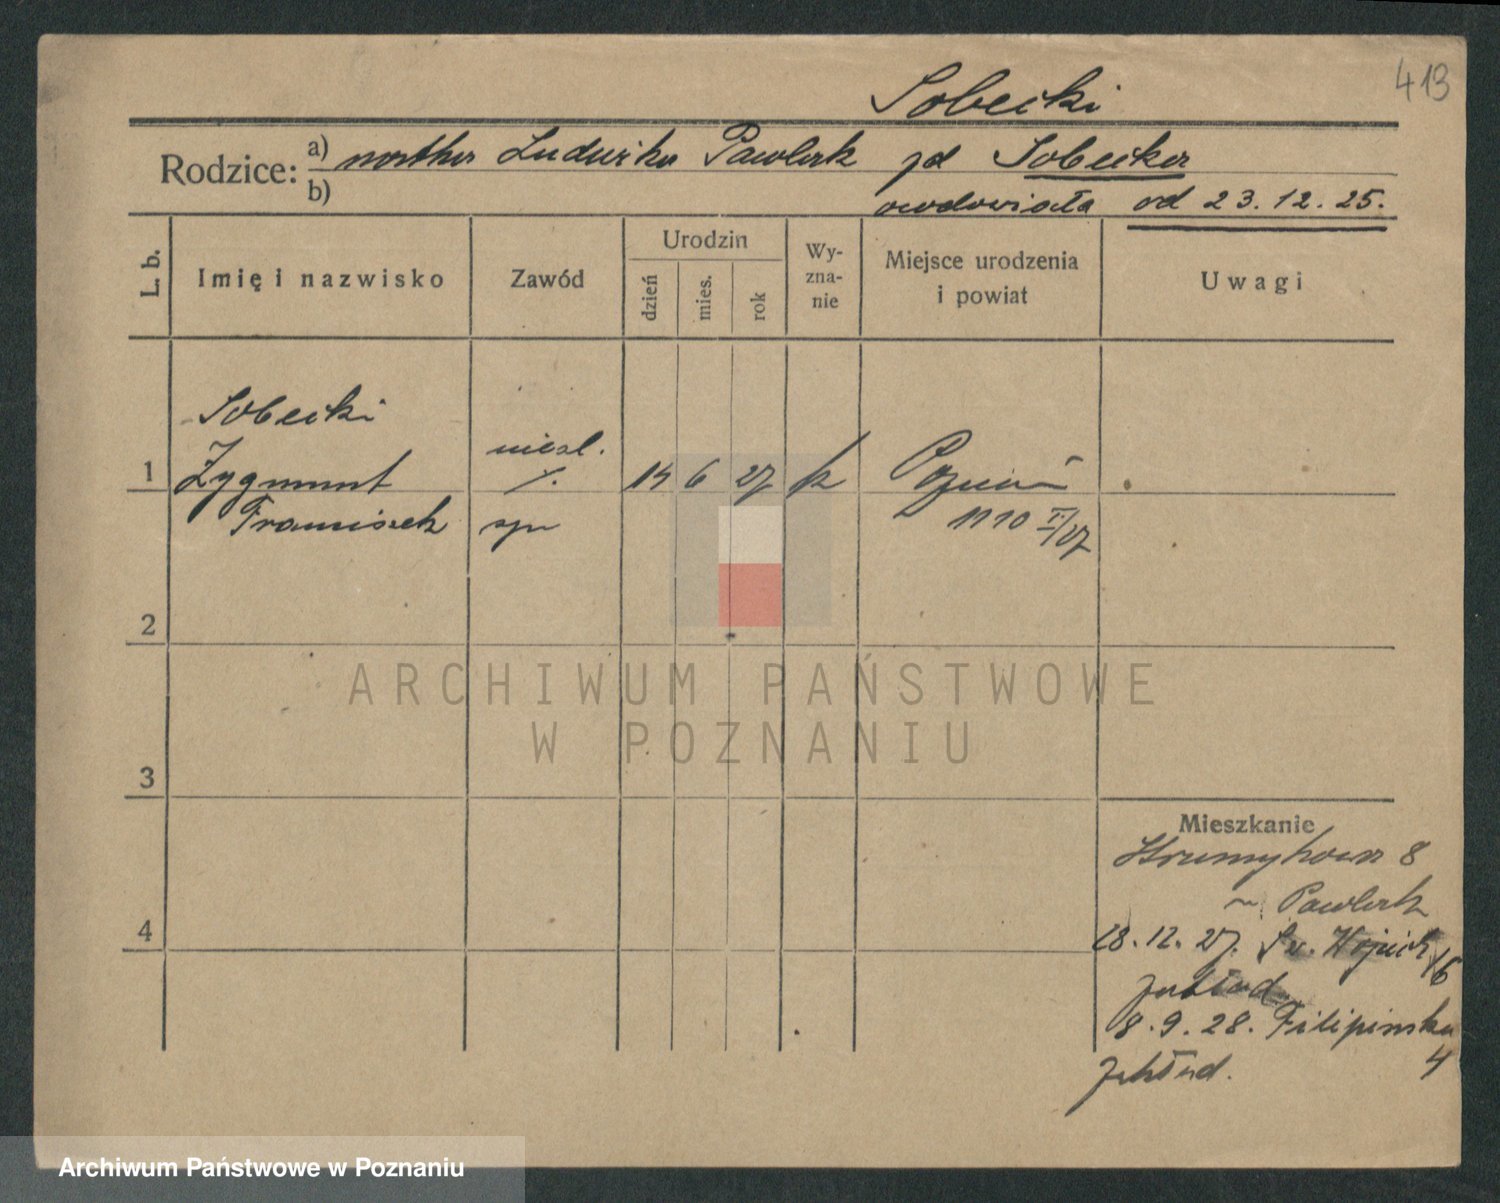 413
Sobecki
Rodzice: a) matka Ludwika Pawlak zd Sobecka
b) owdowiała od 23.12.25.
L. b.
Imię i nazwisko
Zawód
Urodzin
dzień
mies.
rok
Wy-
zna-
nie
Miejsce urodzenia
i powiat
Uwagi
Sobecki
1 Zygmunt nieśl. 14 6 27 k Poznań
Franciszek syn 1110 II/27
2
ARCHIWUM PAŃSTWOWE
W POZNANIU
3
Mieszkanie
8
Pawlak
4
28.12.27. Św. Wojciech 16
zakład.
8.9.28. Filipińska
4
zakład.
Archiwum Państwowe w Poznaniu